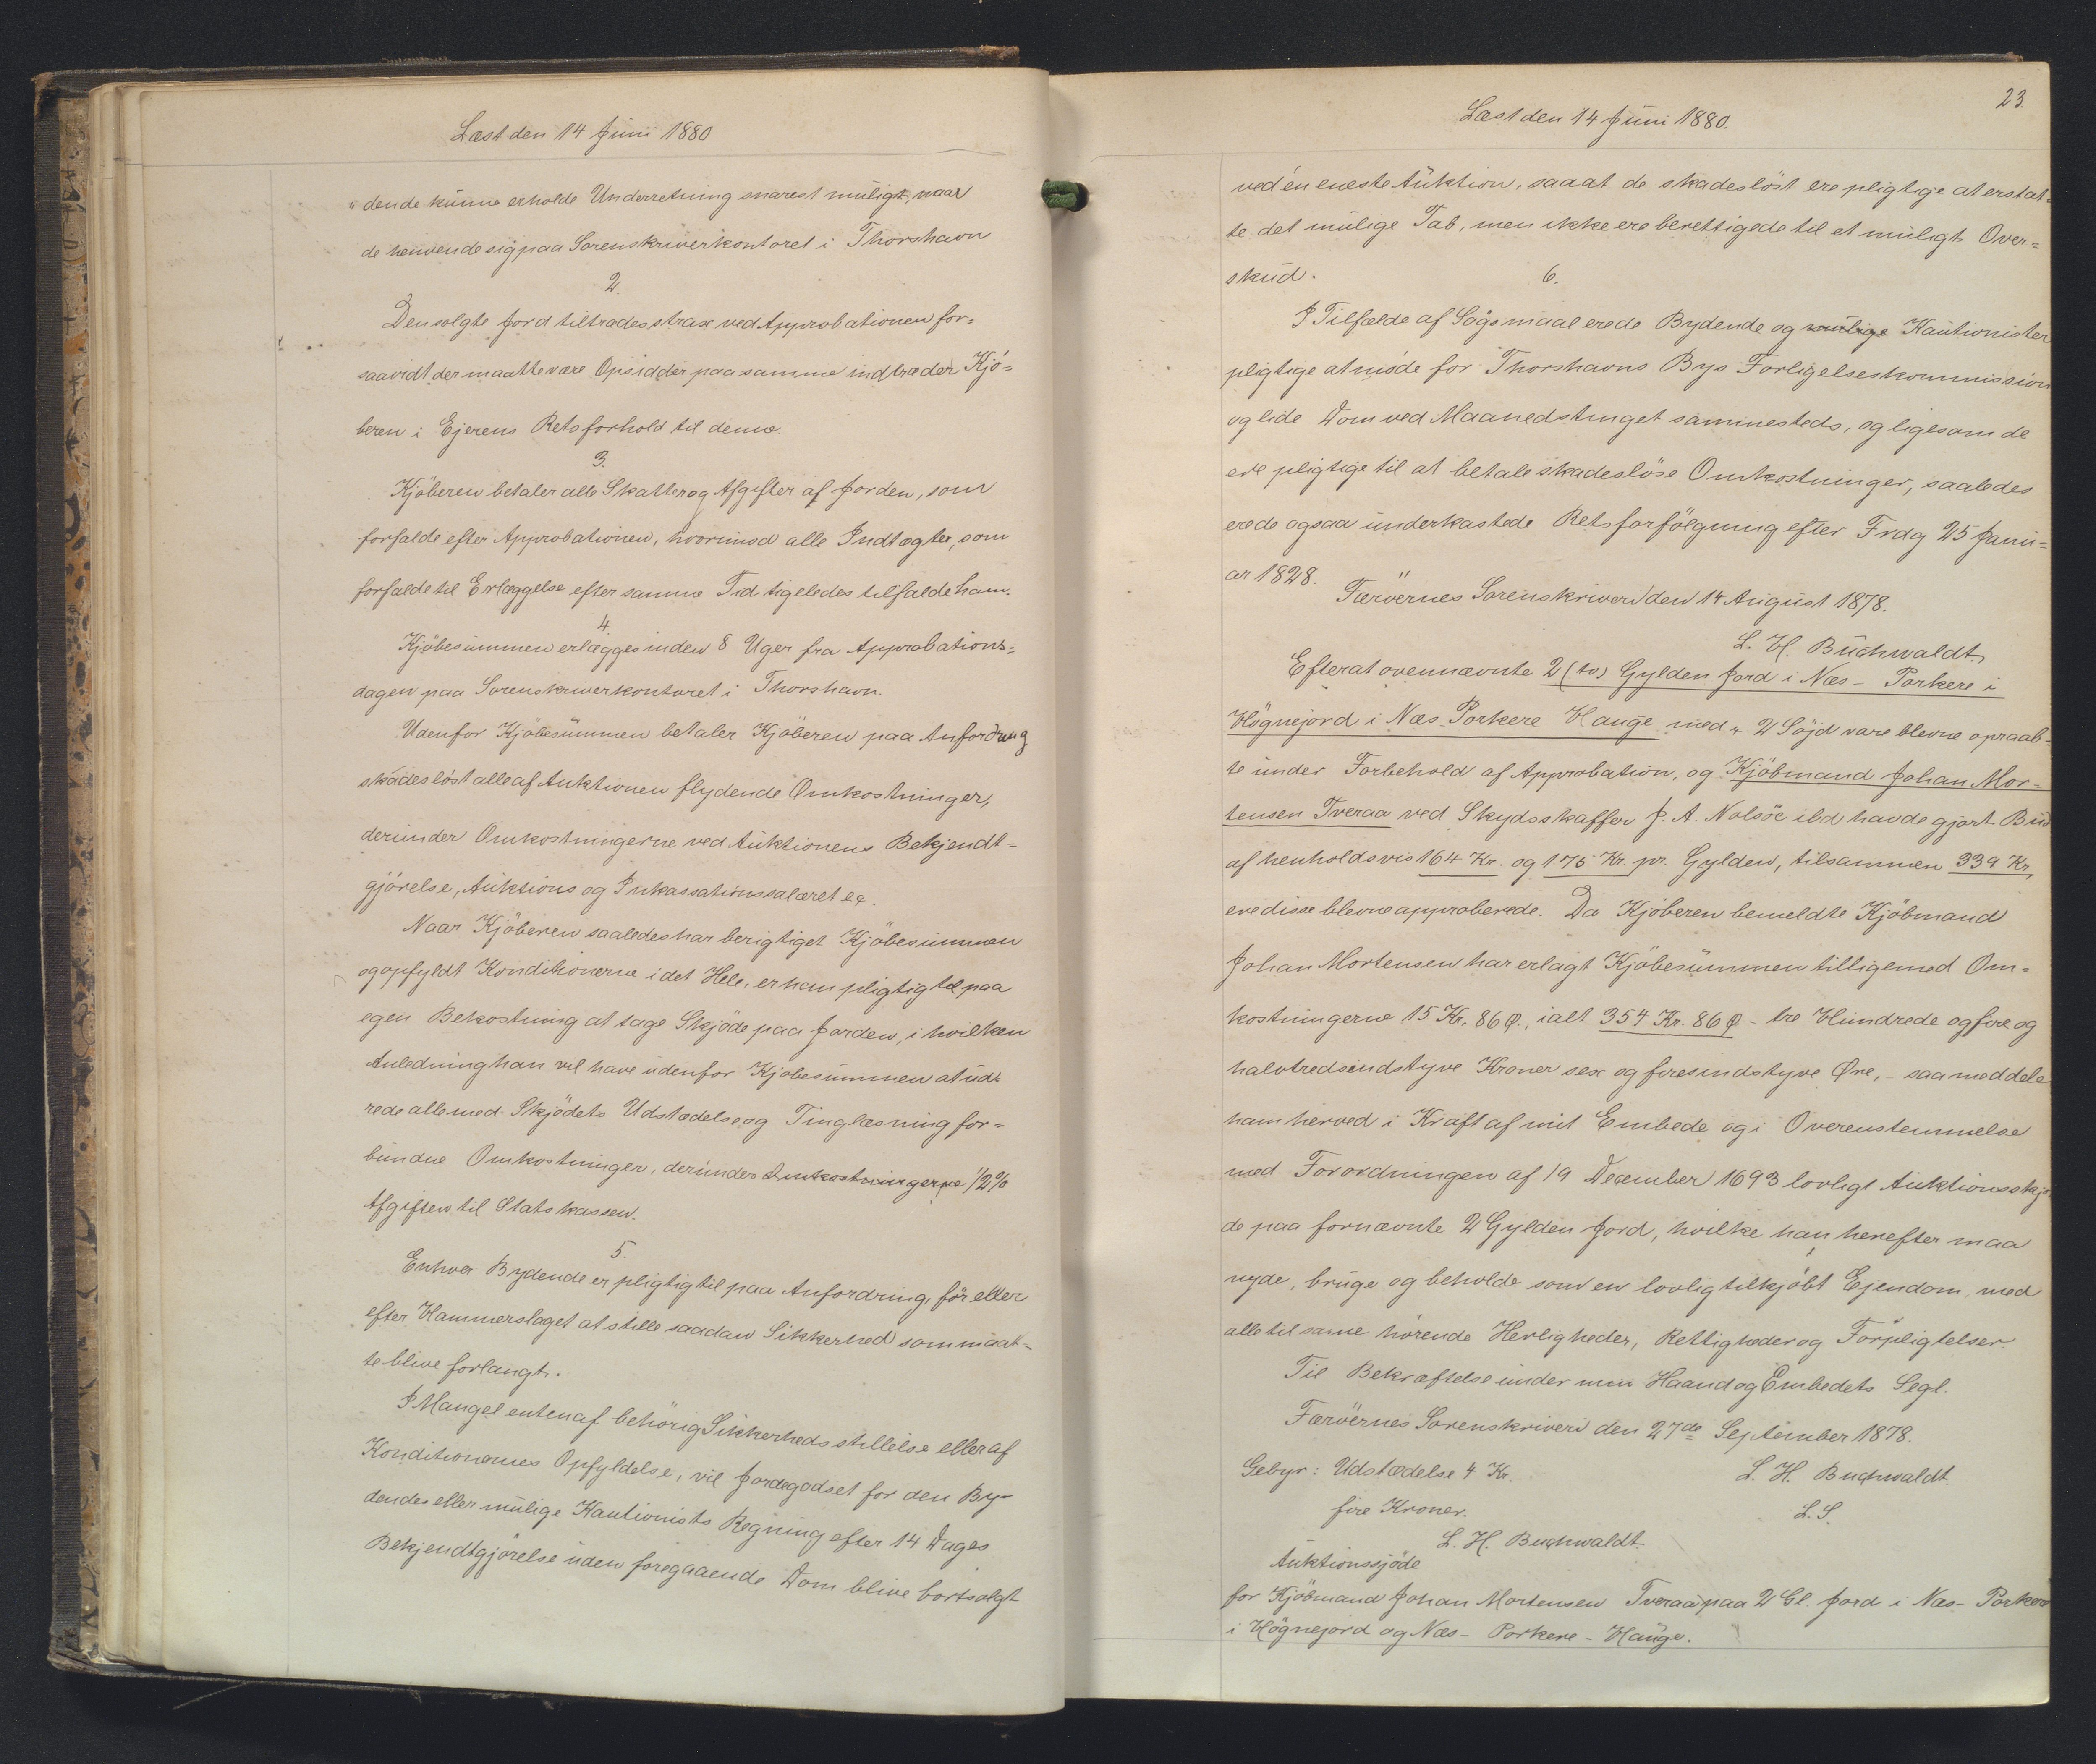 Læst den 14 Juni 1880
"dende kunne erholde Underretning snarest muligt, naar
de henvende sig paa Sorenskriverkontoret i Thorshavn
2.
Den solgte Jord tiltrædes strax ved Approbationen for=
saavidt der maatte være Opsidder paa samme indtræder Kjö=
beren i Ejerens Retsforhold til denne.
3.
Kjöberen betaler alle Skatter og Afgifter af Jorden, som
forfalde efter Approbationen, hvorimod alle Indtægter, som
forfalde til Erlæggelse efter samme Tid ligeledes tilfalde ham.
4.
Kjöbesummen erlægges inden 8 Uger fra Approbations=
dagen paa Sorenskriverkontoret i Thorshavn.
Udenfor Kjöbesummen betaler Kjöberen paa Anfordring
skadeslöst alle af Auktionen flydende Omkostninger,
derunder Omkostningerne ved Auktionens Bekjendt=
gjörelse, Auktions og Inkassationssalæret ec.
Naar Kjöberen saaledes har berigtiget Kjöbesummen
og opfyldt Konditionerne i det Hele, er han pligtig til paa
egen Bekostning at tage Skjöde paa Jorden, i hvilken
Anledning han vil have udenfor Kjöbesummen at ud=
rede alle med Skjödets Udstædelse og Tinglæsning for=
bundne Omkostninger, derunder Omkostningerne 1/2%
Afgiften til Statskassen.
5.
Enhver Bydende er pligtig til paa Anfordring, för eller
efter Hammerslaget at stille saadan Sikkerhed som maat=
te blive forlangt.
I Mangel enten af behörig Sikkerhedsstillelse eller af
Konditionernes Opfyldelse, vil Jordegodset for den By=
dendes eller mulige Kautionists Regning efter 14 Dages
Bekjendtgjörelse uden foregaaende Dom blive bortsolgt
23.
Læst den 14 Juni 1880.
ved én eneste Auktion, saa at de skadeslöst ere pligtige at erstat=
te det mulige Tab, men ikke ere berettigede til et muligt Over=
skud.
6.
I Tilfælde af Sögsmaal ere de Bydende og mulige Kautionister
pligtige at möde for Thorshavns Bys Forligelseskommission
og lide Dom ved Maanedstinget sammesteds, og ligesom de
ere pligtige til at betale skadeslöse Omkostninger, saaledes
ere de ogsaa underkastede Retsforfölgning efter Frdg 25 Janu=
ar 1828.
Færöernes Sorenskriveri den 14 August 1878.
L. H. Buchwaldt.
Efter at ovennævnte 2 (to) Gylden Jord i Næs - Porkere i
Högnejord i Næs-Porkere Hauge med " 2 Söjd vare blevne opraab=
te under Forbehold af Approbation, og Kjöbmand Johan Mor=
tensen Tveraa ved Skydsskaffer J. A. Nolsöe ibd havde gjort Bud
af henholdsvis 164 Kr. og 175 Kr. pr. Gylden, tilsammen 339 Kr,
ere disse blevne approberede. Da Kjöberen bemeldte Kjöbmand
Johan Mortensen har erlagt Kjöbesummen tilligemed Om=
kostningerne 15 Kr. 86 Ø., ialt 354 Kr. 86 Ø - tre Hundrede og fire og
halvtredsindstyve Kroner sex og firesindstyve Øre, - saa meddele
ham herved i Kraft af mit Embede og i Overenstemmelse
med Forordningen af 19 December 1693 lovligt Auktionsskjö
de paa fornævnte 2 Gylden Jord, hvilke han herefter maa
nyde, bruge og beholde som en lovlig tilkjöbt Ejendom, med
alle til same hörende Herligheder, Rettigheder og Forpligtelser.
Til Bekræftelse under min Haand og Embedets Segl.
Færöernes Sorenskriveri den 27de September 1878.
Gebyr: Udstædelse 4 Kr. L. H. Buchwaldt.
fire Kroner. L. S.
L. H. Buchwaldt
Auktionssjöde
for Kjöbmand Johan Mortensen Tveraa paa 2 Gl. Jord i Næs- Porkere
i Högnejord og Næs- Porkere - Hauge.